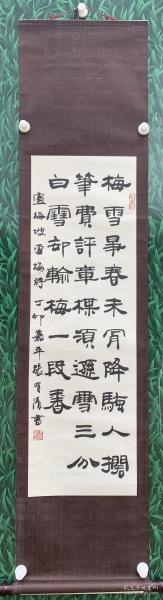 梅雪畢春未肎降騷人擱
筆費評章楳須遜雪三分
白雪却輸梅一段香
盧梅坡雪梅詩丁卯嘉平張可清書